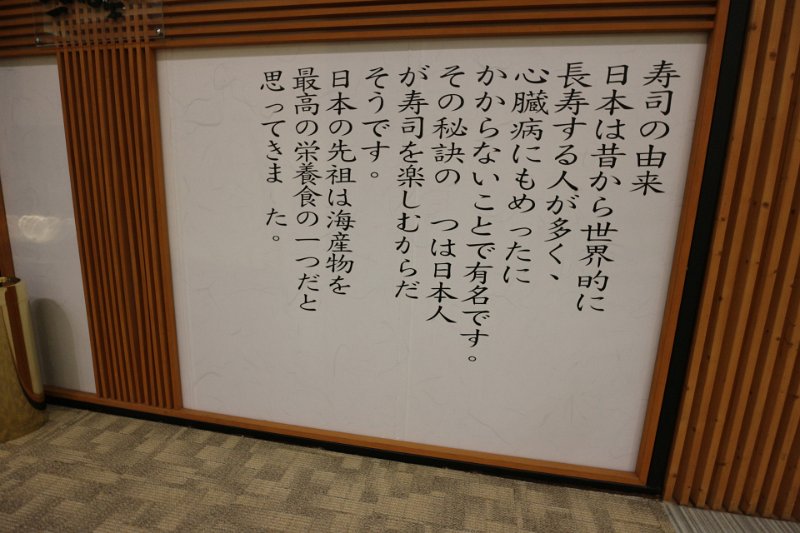 寿司の由来
日本は昔から世界的に
長寿する人が多く、
心臓病にもめったに
かからないことで有名です。
その秘訣の つは日本人
が寿司を楽しむからだ
そうです。
日本の先祖は海産物を
最高の栄養食の一つだと
思ってきま た。